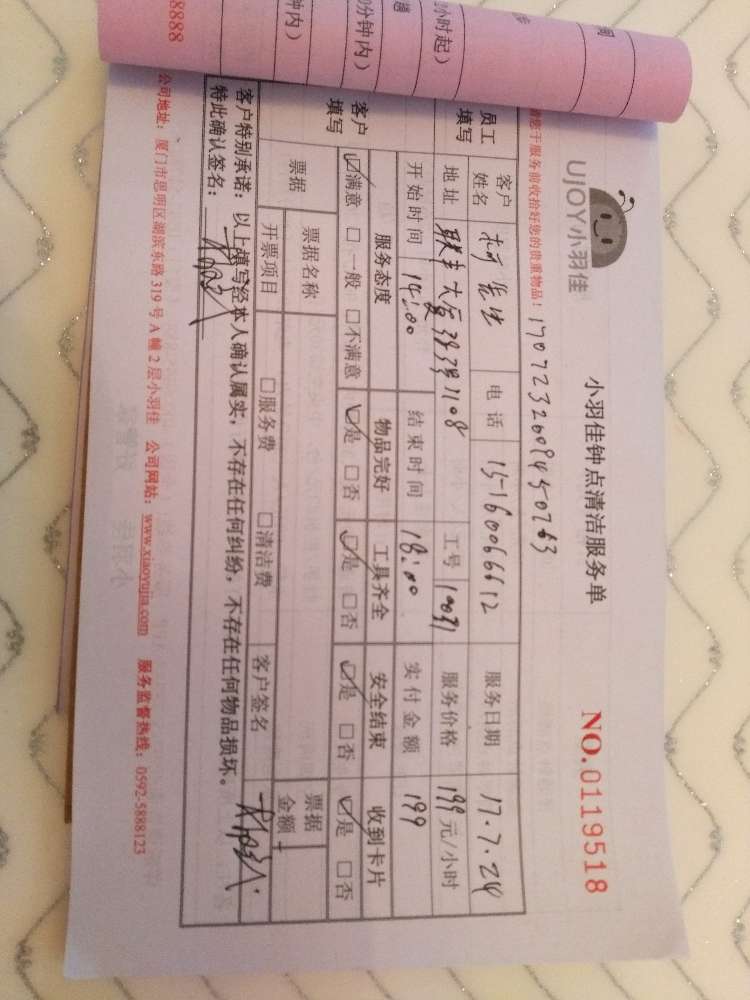 小时起）
0分钟内）
钟内）
UJOY小羽佳
小羽佳钟点清洁服务单
NO.0119518
请您于服务前收拾好您的贵重物品！
1707232609450763
员工填写
客户姓名
电话 15160066612
服务日期 17.7.24
地址
1108
工号
服务价格 199元/小时
开始时间 14:00
结束时间 18:00
实付金额 199
客户填写
服务态度 物品完好 工具齐全 安全结束 收到卡片
☑满意 □一般 □不满意 ☑是 □否 ☑是 □否 ☑是 □否 ☑是 □否
票据
票据名称
票据金额
开票项目 □服务费 □清洁费 客户签名
客户特别承诺：以上填写经本人确认属实，不存在任何纠纷，不存在任何物品损坏。
特此确认签名：
8888
公司地址：厦门市思明区湖滨东路319号A幢2层小羽佳 公司网站：www.xiaoyujia.com 服务监督热线：0592-5888123